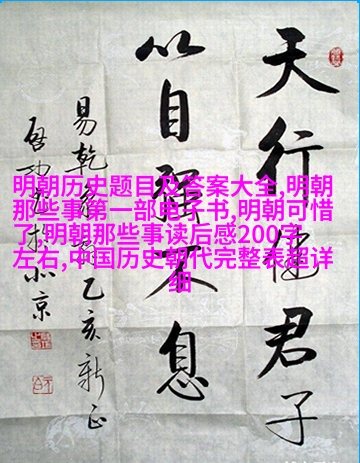 天行健君子
以自强不息
易乾 乙亥新正
啓功 北京
明朝历史题目及答案大全,明朝
那些事第一部电子书,明朝可惜
了,明朝那些事读后感200字
左右,中国历史朝代完整表超详
细